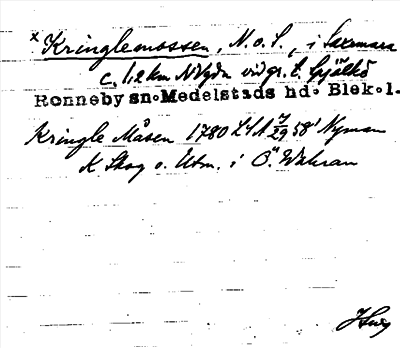 x Kringlemossen, N.o.S., i Saxemara
c. 1,2 km NVgdn vid gr. t. Gjälkö
Ronneby sn. Medelstads hd. Blek.l.
Kringle Måsen 1780 LSA 7/29 58' Nyman
K Skog o. Utm. i Ö. Wäkran